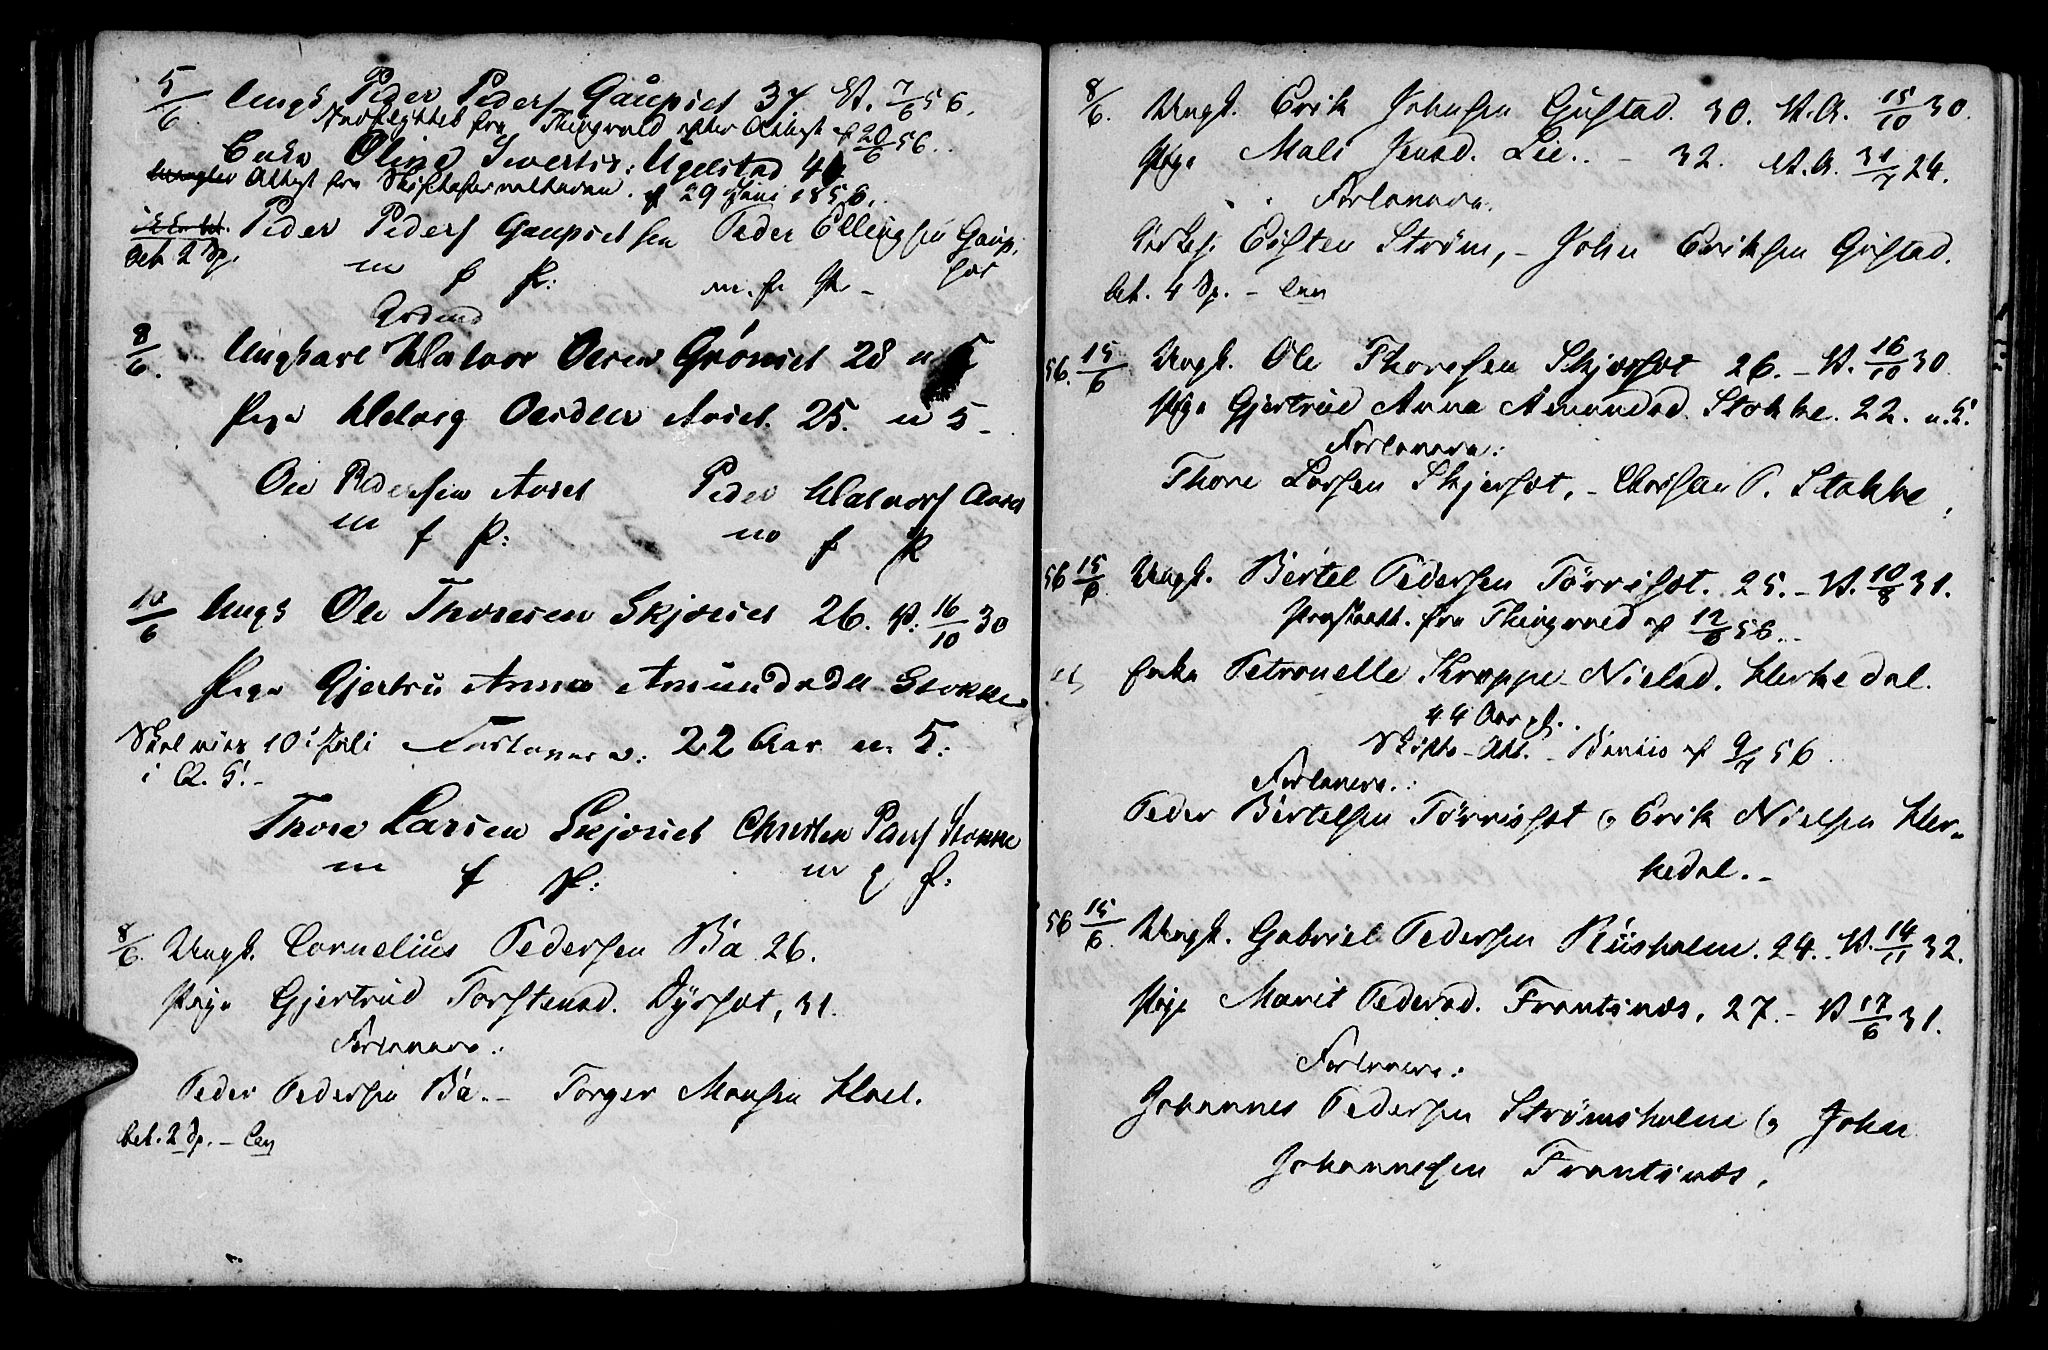 5/6 Ungk Peder Peders Gaupset 37. V. 7/6 56.
fra Thingvold 20/6 56.
Enke Olina Siverts: Ugelstad 4
Attest fra Skifteforvalteren. af 29 Juni 1856.
Peder Peders Gaupset Peder Ellingsen Gaup,
bet 2 Sp.
set
m f P: m. f. P.
8/6. Ungkarl Halvor Grønset 28 n
Pige Avset. 25. n 5.
Pedersen Avset Peder Halvors
m f P: m f P
10/6 Ungk Ole Thoresen Skjørset 26. V. 16/10 30
Pige Gjertru Anna Amundsdtr Stokke
Skal vies 10' Juli Forlovere: 22 Aar n. 5:
Thore Larsen Skjørset Christen Peders Stokke
m f P: m f P:
8/6. Ungk. Cornelius Pedersen Bø 26.
Pige Gjertrud Torstensd. Dyrset, 31.
Forlovere:
Peder Pedersen Bø. - Torger Monsen Hoel.
bet. 2 Sp. -
8/6. Ungk. Erik Johnsen Gustad. 30. V. A. 15/10 30.
Pige Mali Jensd. Lie. - 32. V. A. 31/7 24.
Forlovere.
Eisten Strøm, - John Eriksen Gustad.
bet. 4 Sp. -
56. 15/6 Ungk. Ole Thoresen Skjørset 26. - V. 16/10 30
Pige Gjertrud Anna Amundsd. Stokke. 22. n. 5.
Forlovere:
Thore Larsen Skjørset, - Christen P. Stokke,
56 15/6 Ungk. Bertel Pedersen Tørriset. 25. - V. 10/8 31.
fra Thingvold af 12/6 56.
Enke Petronelle Kroppe Nielsd. Herkedal.
44 Aar gl.
Skifte-Att. - Beviis af 9/7 56
Forlovere:
Peder Bertelsen Tørriset og Erik Nielsen Her-
kedal. -
56 15/6. Ungk. Gabriel Pedersen Riisholm. 24. V. 14/11 32.
Pige Marit Pedersd. Frantsnes, 27. - V 17/6 31.
Forlovere:
Johannes Pedersen Strømsholm og John
Johannesen Frantsnes,